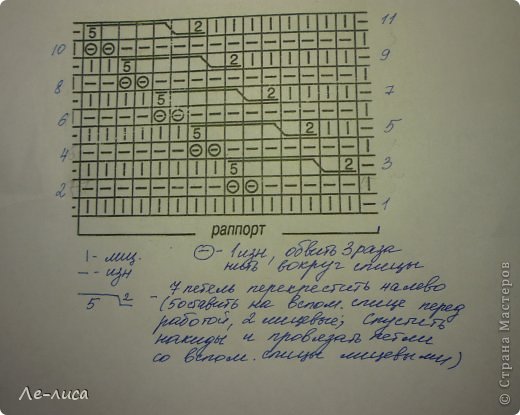 11
5 2
10
9
5 2
8
7
5 2
6
5
5 2
4
3
5 2
2
1
раппорт
I - лиц. ⊖ - 1 изн, обвить 3 раза
— - изн нить вокруг спицы
5 2 - 7 петель перекрестить налево
(5 оставить на вспом. спице перед
работой, 2 лицевые; спустить
накиды и провязать петли
со вспом. спицы лицевыми)
Ле-лиса
© Страна Мастеров